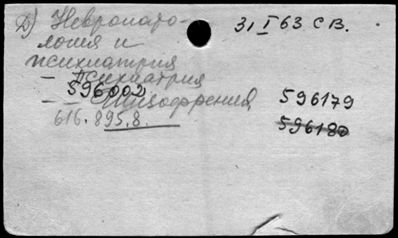 Д) Невропато- 31 I 63 СВ.
логия и
психиатрия
- Психиатрия
596002
- - Шизофрения 596179
616.895.8. 596180